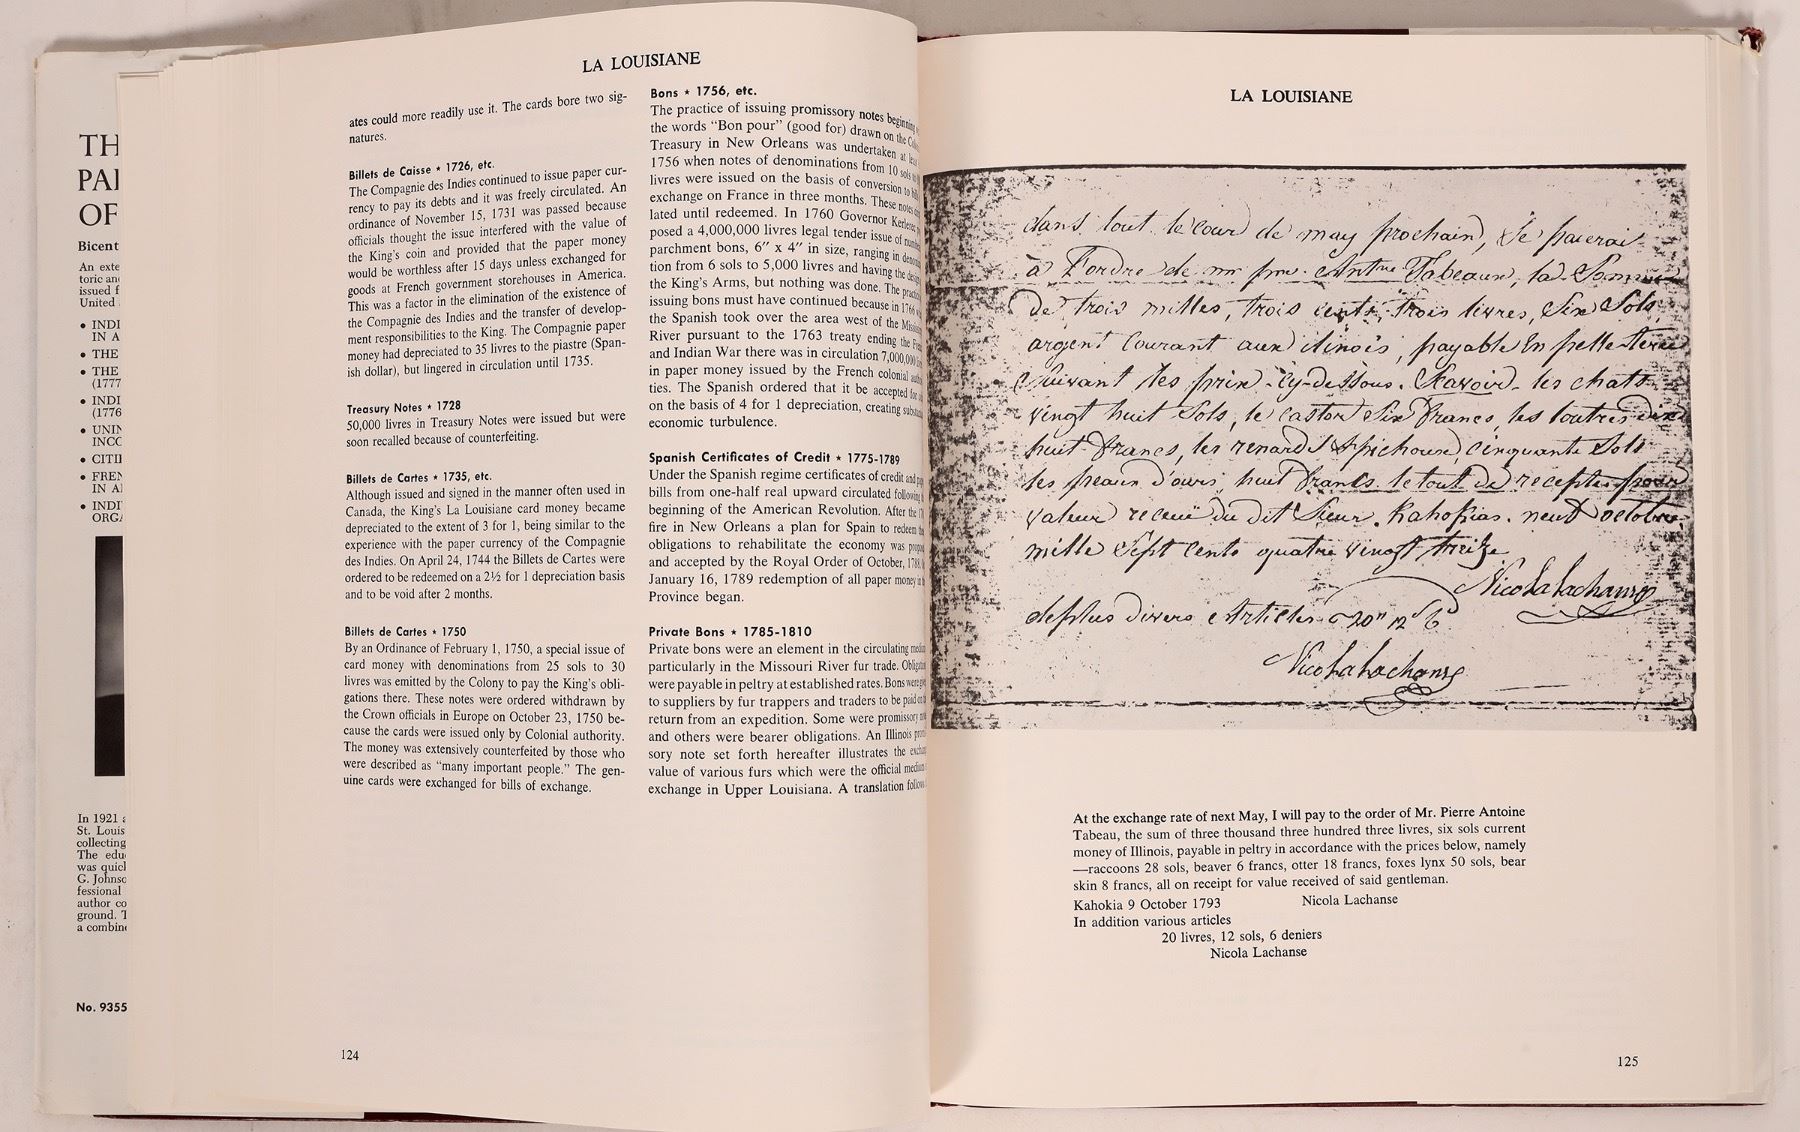 TH
PAI
OF
Bicent
An exte
toric an
issued f
United
• INDI
IN A
• THE
• THE
(1777
• INDI
(1776
• UNIN
INCC
• CITI
• FREN
IN A
• INDI
ORGA
In 1921
St. Louis
collecting
The edu
was quicl
G. Johnso
fessional
author co
ground. T
a combine
No. 9355
LA LOUISIANE
ates could more readily use it. The cards bore two sig-
natures.
Billets de Caisse ★ 1726, etc.
The Compagnie des Indies continued to issue paper cur-
rency to pay its debts and it was freely circulated. An
ordinance of November 15, 1731 was passed because
officials thought the issue interfered with the value of
the King's coin and provided that the paper money
would be worthless after 15 days unless exchanged for
goods at French government storehouses in America.
This was a factor in the elimination of the existence of
the Compagnie des Indies and the transfer of develop-
ment responsibilities to the King. The Compagnie paper
money had depreciated to 35 livres to the piastre (Span-
ish dollar), but lingered in circulation until 1735.
Treasury Notes ★ 1728
50,000 livres in Treasury Notes were issued but were
soon recalled because of counterfeiting.
Billets de Cartes ★ 1735, etc.
Although issued and signed in the manner often used in
Canada, the King's La Louisiane card money became
depreciated to the extent of 3 for 1, being similar to the
experience with the paper currency of the Compagnie
des Indies. On April 24, 1744 the Billets de Cartes were
ordered to be redeemed on a 2½ for 1 depreciation basis
and to be void after 2 months.
Billets de Cartes ★ 1750
By an Ordinance of February 1, 1750, a special issue of
card money with denominations from 25 sols to 30
livres was emitted by the Colony to pay the King's obli-
gations there. These notes were ordered withdrawn by
the Crown officials in Europe on October 23, 1750 be-
cause the cards were issued only by Colonial authority.
The money was extensively counterfeited by those who
were described as "many important people." The gen-
uine cards were exchanged for bills of exchange.
Bons ★ 1756, etc.
The practice of issuing promissory notes beginning
the words "Bon pour" (good for) drawn on the
Treasury in New Orleans was undertaken at
1756 when notes of denominations from 10 sols
livres were issued on the basis of conversion to
exchange on France in three months. These notes
lated until redeemed. In 1760 Governor Kerlerec
posed a 4,000,000 livres legal tender issue of
parchment bons, 6" x 4" in size, ranging in
tion from 6 sols to 5,000 livres and having the
the King's Arms, but nothing was done. The
issuing bons must have continued because in
the Spanish took over the area west of the
River pursuant to the 1763 treaty ending the
and Indian War there was in circulation 7,000,000
in paper money issued by the French colonial
ties. The Spanish ordered that it be accepted
on the basis of 4 for 1 depreciation, creating
economic turbulence.
Spanish Certificates of Credit ★ 1775-1789
Under the Spanish regime certificates of credit and
bills from one-half real upward circulated following
beginning of the American Revolution. After the
fire in New Orleans a plan for Spain to redeem
obligations to rehabilitate the economy was
and accepted by the Royal Order of October, 1788.
January 16, 1789 redemption of all paper money in
Province began.
Private Bons ★ 1785-1810
Private bons were an element in the circulating
particularly in the Missouri River fur trade.
were payable in peltry at established rates. Bons were
to suppliers by fur trappers and traders to be paid
return from an expedition. Some were promissory
and others were bearer obligations. An Illinois
sory note set forth hereafter illustrates the
value of various furs which were the official
exchange in Upper Louisiana. A translation follows
124
LA LOUISIANE
dans tout le cour de may prochain, Je paierai
à l'ordre de mr Antne Tabeaux, la Somme
de trois milles, trois cents trois livres, Six Sols,
argent Courant aux ilinois, payable En pelleterie
Suivant les prix cy-dessous. Scavoir - les chats
vingt huit Sols, le castor Six francs, les loutres dix
huit francs, les renards & pichoux cinquante Sols
les peaux d'ours huit francs. le tout de pour
valeur receuë du dit Sieur. Kahokias. neuf octobre
mille Sept cents quatre vingt treize
Nicola Lachanse
de plus divers Articles 20" 12
Nicola Lachanse
At the exchange rate of next May, I will pay to the order of Mr. Pierre Antoine
Tabeau, the sum of three thousand three hundred three livres, six sols current
money of Illinois, payable in peltry in accordance with the prices below, namely
—raccoons 28 sols, beaver 6 francs, otter 18 francs, foxes lynx 50 sols, bear
skin 8 francs, all on receipt for value received of said gentleman.
Kahokia 9 October 1793 Nicola Lachanse
In addition various articles
20 livres, 12 sols, 6 deniers
Nicola Lachanse
125